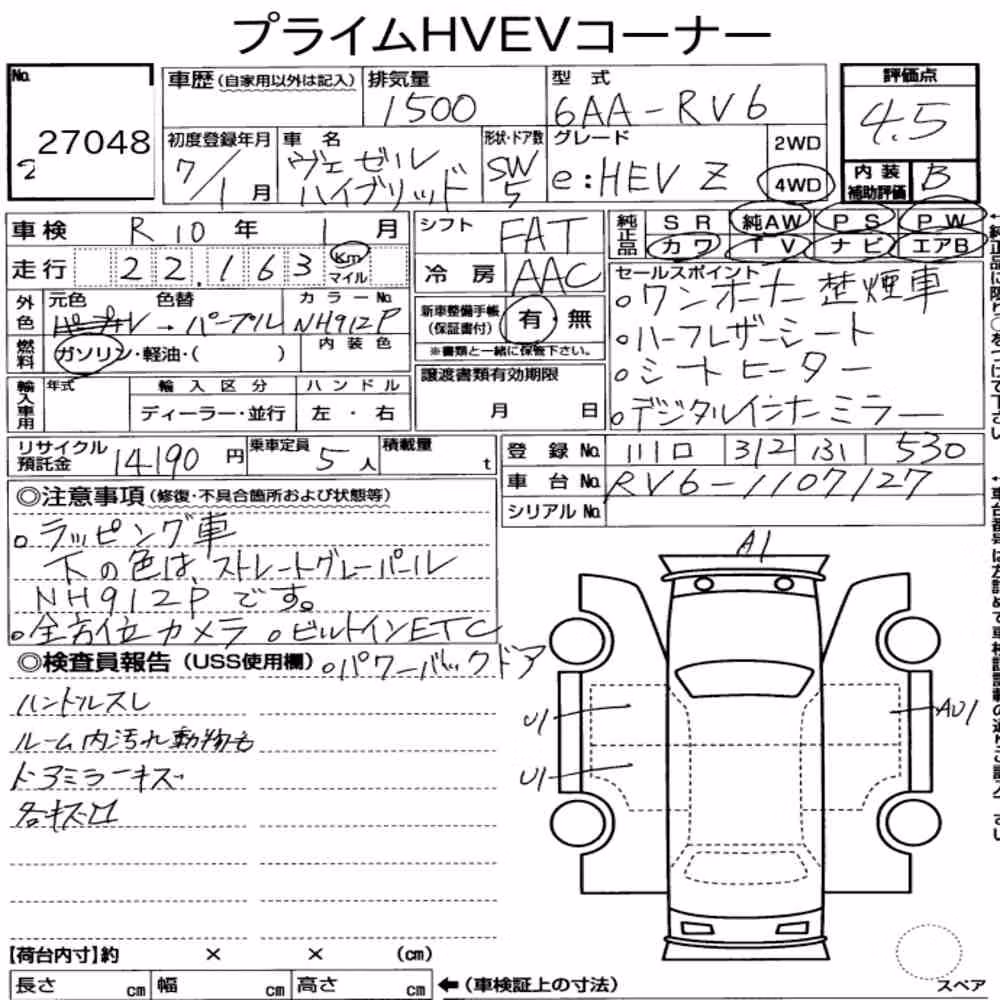 プライムHVEVコーナー
No.
27048
2
車歴 (自家用以外は記入)
排気量
1500
型 式
6AA-RV6
評価点
4.5
初度登録年月
7/1月
車 名
ヴェゼル
ハイブリッド
形状・ドア数
SW
5
グレード
e:HEV Z
2WD
4WD
内 装
補助評価
B
車検 R10年 1月
走行 22,163 Km
マイル
シフト FAT
冷 房 AAC
純正品
S R 純AW P S P W
カワ T V ナビ エアB
外色
元色 色替 カラーNo.
→パープル NH912P
内 装 色
燃料
ガソリン・軽油・( )
新車整備手帳
(保証書付)
有・無
※書類と一緒に保管下さい。
セールスポイント
○ワンオーナー 禁煙車
○ハーフレザーシート
○シートヒーター
○デジタルインナーミラー
輸入車用
年式
輸 入 区 分
ハ ン ド ル
ディーラー・並行
左 ・ 右
譲渡書類有効期限
月 日
リサイクル
預託金
14190 円
乗車定員
5人
積載量
t
登 録 No. 川口 312 530
車 台 No. RV6-1107127
シリアルNo.
◎注意事項 (修復・不具合箇所および状態等)
○ラッピング車
下の色は、ストレートグレーパール
NH912Pです。
○全方位カメラ ○ビルトインETC
◎検査員報告 (USS使用欄) ○パワーバックドア
ハンドルスレ
ルーム内汚れ動物毛
ドアミラーキズ
各キズ凹
A1
U1
AU1
U1
【荷台内寸】約 × × (cm)
長さ cm 幅 cm 高さ cm ←(車検証上の寸法)
スペア